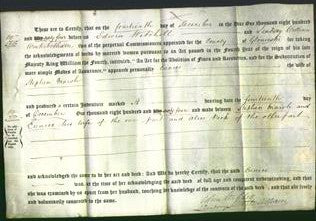 These are to Certify, that on the fourteenth day of December in the Year One thousand eight hundred
and sixty four before us Edwin Witchell and Lindsey William
Winterbotham two of the perpetual Commissioners appointed for the County of Gloucester for taking the
acknowledgments of deeds by married women pursuant to an Act passed in the Fourth Year of the reign of his late
Majesty King William the Fourth, intituled "An Act for the Abolition of Fines and Recoveries, and for the Substitution of
more simple Modes of Assurance," appeared personally Eunice the wife of
Stephen
and produced a certain Indenture marked A bearing date the fourteenth day
of December One thousand eight hundred and sixty four and made between Stephen
Eunice his wife of the one part and of the other part
and acknowledged the same to be her act and deed: And We do hereby Certify, that the said Eunice
was, at the time of her acknowledging the said deed of full age and competent understanding, and that
she was examined by us apart from her husband, touching her knowledge of the contents of the said deed, and that she freely
and voluntarily consented to the same.